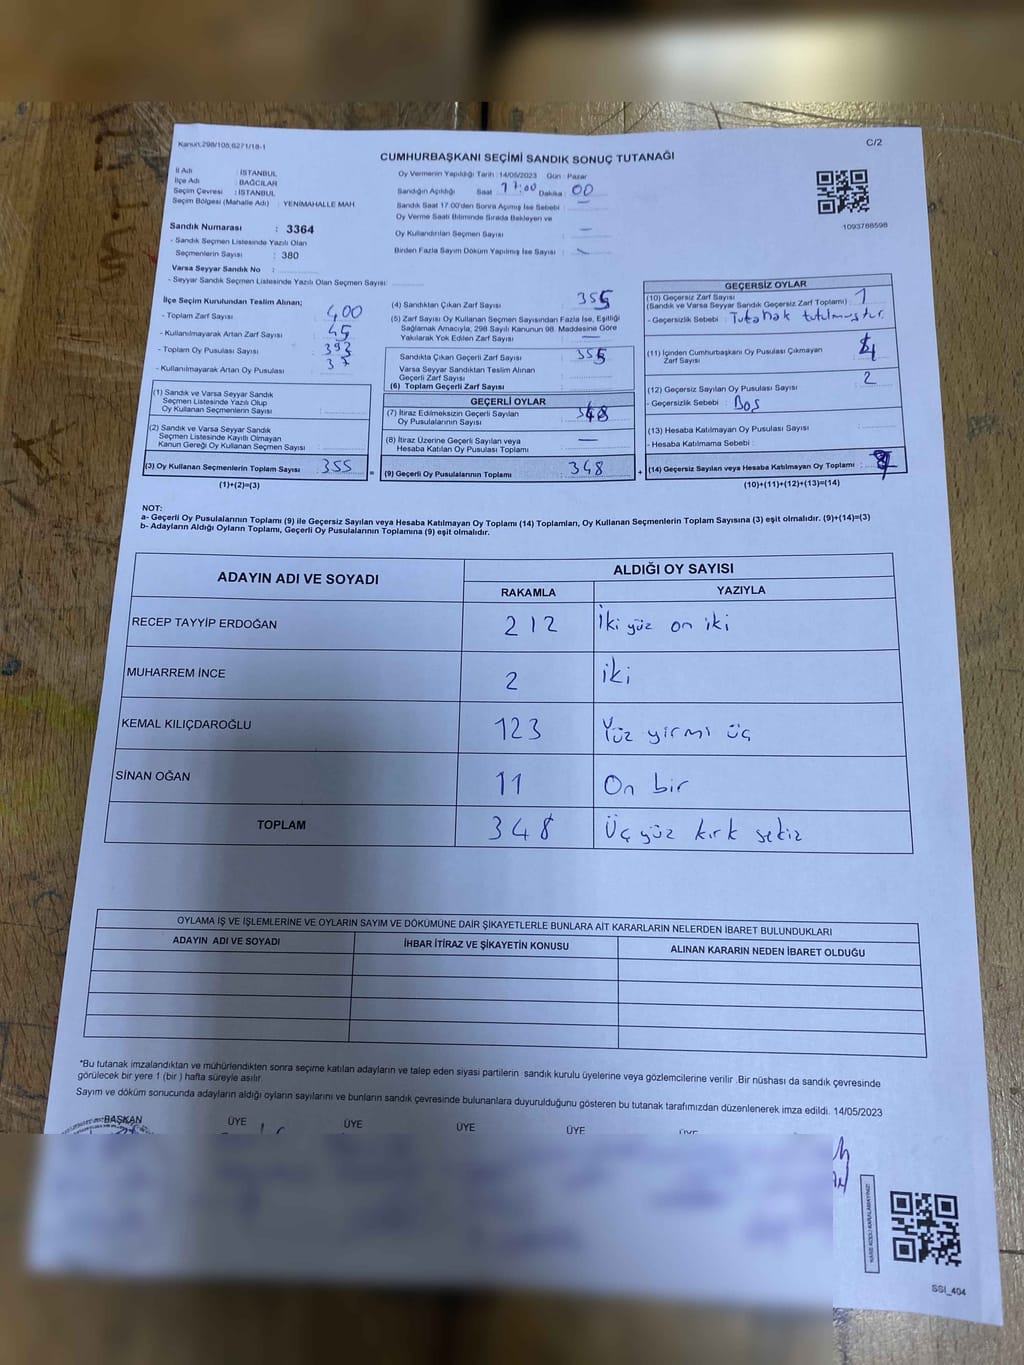 Kanun,298/105,6271/18-1
C/2
CUMHURBAŞKANI SEÇİMİ SANDIK SONUÇ TUTANAĞI
İl Adı : İSTANBUL
İlçe Adı : BAĞCILAR
Seçim Çevresi : İSTANBUL
Seçim Bölgesi (Mahalle Adı) : YENİMAHALLE MAH.
Sandık Numarası : 3364
- Sandık Seçmen Listesinde Yazılı Olan
Seçmenlerin Sayısı : 380
Varsa Seyyar Sandık No :
- Seyyar Sandık Seçmen Listesinde Yazılı Olan Seçmen Sayısı:
Oy Vermenin Yapıldığı Tarih : 14/05/2023 Gün : Pazar
Sandığın Açıldığı Saat 17:00 Dakika : 00
Sandık Saat 17.00'den Sonra Açımış İse Sebebi : —
Oy Verme Saati Bitiminde Sırada Bekleyen ve
Oy Kullandırılan Seçmen Sayısı : —
Birden Fazla Sayım Döküm Yapılmış İse Sayısı :
1093788598
İlçe Seçim Kurulundan Teslim Alınan;
- Toplam Zarf Sayısı : 400
- Kullanılmayarak Artan Zarf Sayısı : 45
- Toplam Oy Pusulası Sayısı : 393
- Kullanılmayarak Artan Oy Pusulası : 37
(1) Sandık ve Varsa Seyyar Sandık
Seçmen Listesinde Yazılı Olup
Oy Kullanan Seçmenlerin Sayısı :
(2) Sandık ve Varsa Seyyar Sandık
Seçmen Listesinde Kayıtlı Olmayan
Kanun Gereği Oy Kullanan Seçmen Sayısı :
(3) Oy Kullanan Seçmenlerin Toplam Sayısı : 355
(1)+(2)=(3)
(4) Sandıktan Çıkan Zarf Sayısı : 355
(5) Zarf Sayısı Oy Kullanan Seçmen Sayısından Fazla İse, Eşitliği
Sağlamak Amacıyla, 298 Sayılı Kanunun 98. Maddesine Göre
Yakılarak Yok Edilen Zarf Sayısı : —
Sandıkta Çıkan Geçerli Zarf Sayısı : 355
Varsa Seyyar Sandıktan Teslim Alınan
Geçerli Zarf Sayısı :
(6) Toplam Geçerli Zarf Sayısı :
GEÇERLİ OYLAR
(7) İtiraz Edilmeksizin Geçerli Sayılan
Oy Pusulalarının Sayısı : 348
(8) İtiraz Üzerine Geçerli Sayılan veya
Hesaba Katılan Oy Pusulası Toplamı : —
= (9) Geçerli Oy Pusulalarının Toplamı : 348
GEÇERSİZ OYLAR
(10) Geçersiz Zarf Sayısı
(Sandık ve Varsa Seyyar Sandık Geçersiz Zarf Toplamı) : 1
- Geçersizlik Sebebi : Tutanak tutulmuştur.
(11) İçinden Cumhurbaşkanı Oy Pusulası Çıkmayan
Zarf Sayısı : 4
(12) Geçersiz Sayılan Oy Pusulası Sayısı : 2
- Geçersizlik Sebebi : Boş
(13) Hesaba Katılmayan Oy Pusulası Sayısı :
- Hesaba Katılmama Sebebi :
+ (14) Geçersiz Sayılan veya Hesaba Katılmayan Oy Toplamı :
(10)+(11)+(12)+(13)=(14)
NOT:
a- Geçerli Oy Pusulalarının Toplamı (9) ile Geçersiz Sayılan veya Hesaba Katılmayan Oy Toplamı (14) Toplamları, Oy Kullanan Seçmenlerin Toplam Sayısına (3) eşit olmalıdır. (9)+(14)=(3)
b- Adayların Aldığı Oyların Toplamı, Geçerli Oy Pusulalarının Toplamına (9) eşit olmalıdır.
ADAYIN ADI VE SOYADI
ALDIĞI OY SAYISI
RAKAMLA YAZIYLA
RECEP TAYYİP ERDOĞAN 212 İki yüz on iki
MUHARREM İNCE 2 iki
KEMAL KILIÇDAROĞLU 123 Yüz yirmi üç
SİNAN OĞAN 11 On bir
TOPLAM 348 Üç yüz kırk sekiz
OYLAMA İŞ VE İŞLEMLERİNE VE OYLARIN SAYIM VE DÖKÜMÜNE DAİR ŞİKAYETLERLE BUNLARA AİT KARARLARIN NELERDEN İBARET BULUNDUKLARI
ADAYIN ADI VE SOYADI İHBAR İTİRAZ VE ŞİKAYETİN KONUSU ALINAN KARARIN NEDEN İBARET OLDUĞU
*Bu tutanak imzalandıktan ve mühürlendikten sonra seçime katılan adayların ve talep eden siyasi partilerin sandık kurulu üyelerine veya gözlemcilerine verilir .Bir nüshası da sandık çevresinde
görülecek bir yere 1 (bir ) hafta süreyle asılır.
Sayım ve döküm sonucunda adayların aldığı oyların sayılarını ve bunların sandık çevresinde bulunanlara duyurulduğunu gösteren bu tutanak tarafımızdan düzenlenerek imza edildi. 14/05/2023
BAŞKAN ÜYE ÜYE ÜYE ÜYE ÜYE
SSI_404